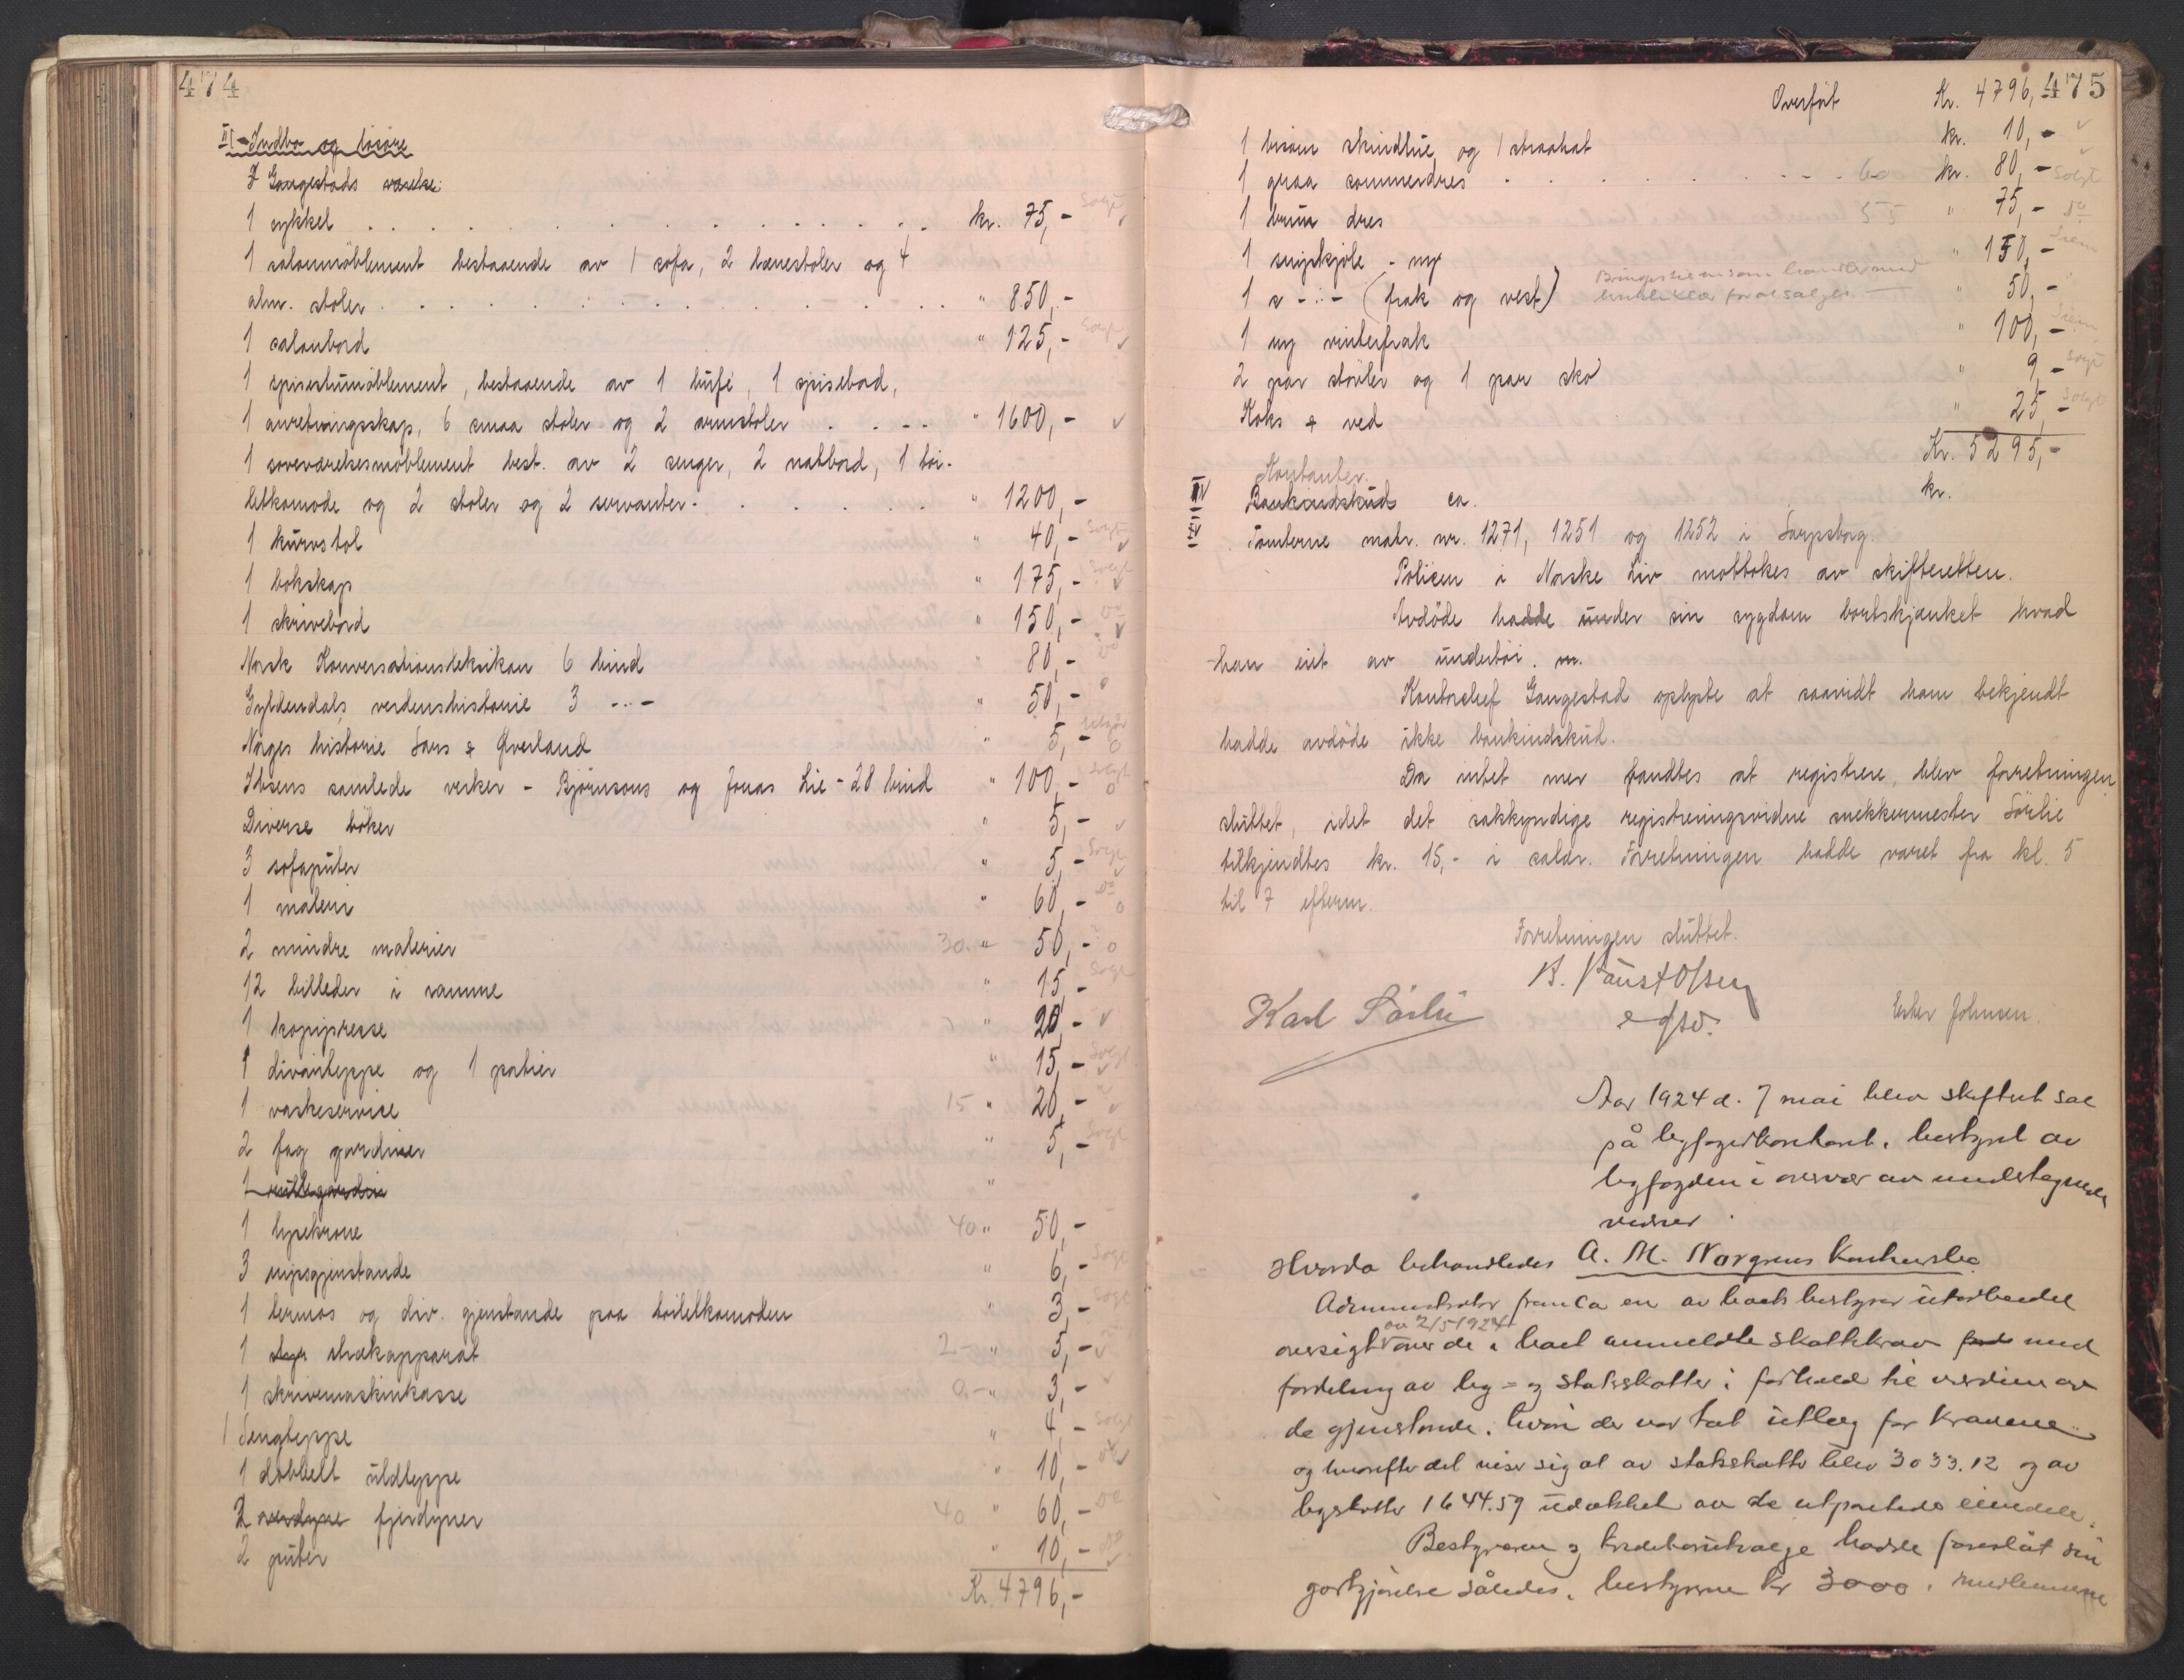 474
III Indbo og løsøre
I Gangestads værelse:
1 cykkel kr. 75,- Solgt
1 salonmöblement bestaaende av 1 sofa, 2 lænestoler og 4
alm. stoler " 850,-
1 salonbord " 125,- Solgt
1 spisestumöblement, bestaaende av 1 bufé, 1 spisebord,
1 anretningsskap, 6 smaa stoler og 2 armstoler " 1600,-
1 soveværelsesmöblement best. av 2 senger, 2 natbord, 1 toi-
letkomode og 2 stoler og 2 servanter. " 1200,-
1 kurvstol " 40,- Solgt
1 bokskap " 175,- Solgt
1 skrivebord " 150,- Do
Norsk Konversationsleksikon 6 bind " 80,- Do
Gyldendals verdenshistorie 3 -"- " 50,-
Norges historie Sars & Øverland " 5,-
Ibsens samlede verker - Björnsons og Jonas Lie - 28 bind " 100,- Solgt
Diverse böker " 5,-
3 sofaputer " 5,- Solgt
1 maleri " 60,- Do
2 mindre malerier 30.- " 50,-
12 billeder i ramme " 15,- Solgt
1 kopipresse " 20,-
1 divanteppe og 1 portier " 15,- Solgt
1 vaskeservise 15 " 20,-
2 fag gardiner " 5,- Solgt
1 rullegardin "
1 lysekrone 40 " 50,-
3 nipsgjenstande " 6,- Solgt
1 termos og div. gjenstande paa toiletkomoden " 3,- Solgt
1 stk. shækapparat 2- " 5,-
1 skrivemaskinkasse " 3,-
1 Sengteppe " 4,- Solgt
1 dobbelt uldteppe " 10,- Do
2 overdyne fjerdyner 40 " 60,- Do
2 puter " 10,- Do
Kr. 4796,-
475
Overført Kr. 4796,-
1 bisam skindlue og 1 straahat kr. 10,-
1 graa sommerdres 60 kr. 80,- Solgt
1 brun dres 55 " 75,- Do
1 snipkjole - ny " 150,-
1 s -"- (frak og vest) " 50,-
1 ny vinterfrak " 100,-
2 par støvler og 1 par sko " 9,- Solgt
Koks & ved " 25,- Solgt
Kr. 5295,-
Kontanter.
IV Bankindskud ca. kr.
Tomterne matr. nr. 1271, 1251 og 1252 i Sarpsborg.
Policen i Norske Liv mottokes av skifteretten.
Avdöde hadde under sin sygdom bortskjænket hvad
han eiet av undertöi. m.
Kontorchef Gangestad oplyste at saavidt ham bekjendt
hadde avdöde ikke bankindskud.
Da intet mer fandtes at registrere, blev forretningen
sluttet, idet det sakkyndige registreringsvidne snekkermester Sörlie
tilkjendtes kr. 15,- i salær. Forretningen hadde varet fra kl. 5
til 7 efterm.
Forretningen sluttet.
Karl Sörlie
Ester Johnsen.
Aar 1924 d. 7 mai blev skifteret sat
på byfogedkontoret, bestyret av
byfogden i overvær av undertegnede
vidner.
Hvorda behandledes A. M. Norgrens Konkursbo
Administrator fremla en av boets bestyrer utarbeidet
oversigt av 2/5 1924 over de i boet anmeldte skattekrav med
fordeling av by- og statsskatter i forhold til værdien av
de gjenstande, hvori der var tat utlæg for kravene
og hvorefter det viser sig at av statsskatter blev 3033.12 og av
byskatter 1644.59 udækket av de utpantede eiendele.
Bestyreren og kreditorutvalget hadde foreslåt sin
godtgjørelse således, bestyrerne kr 3000, medlemmene